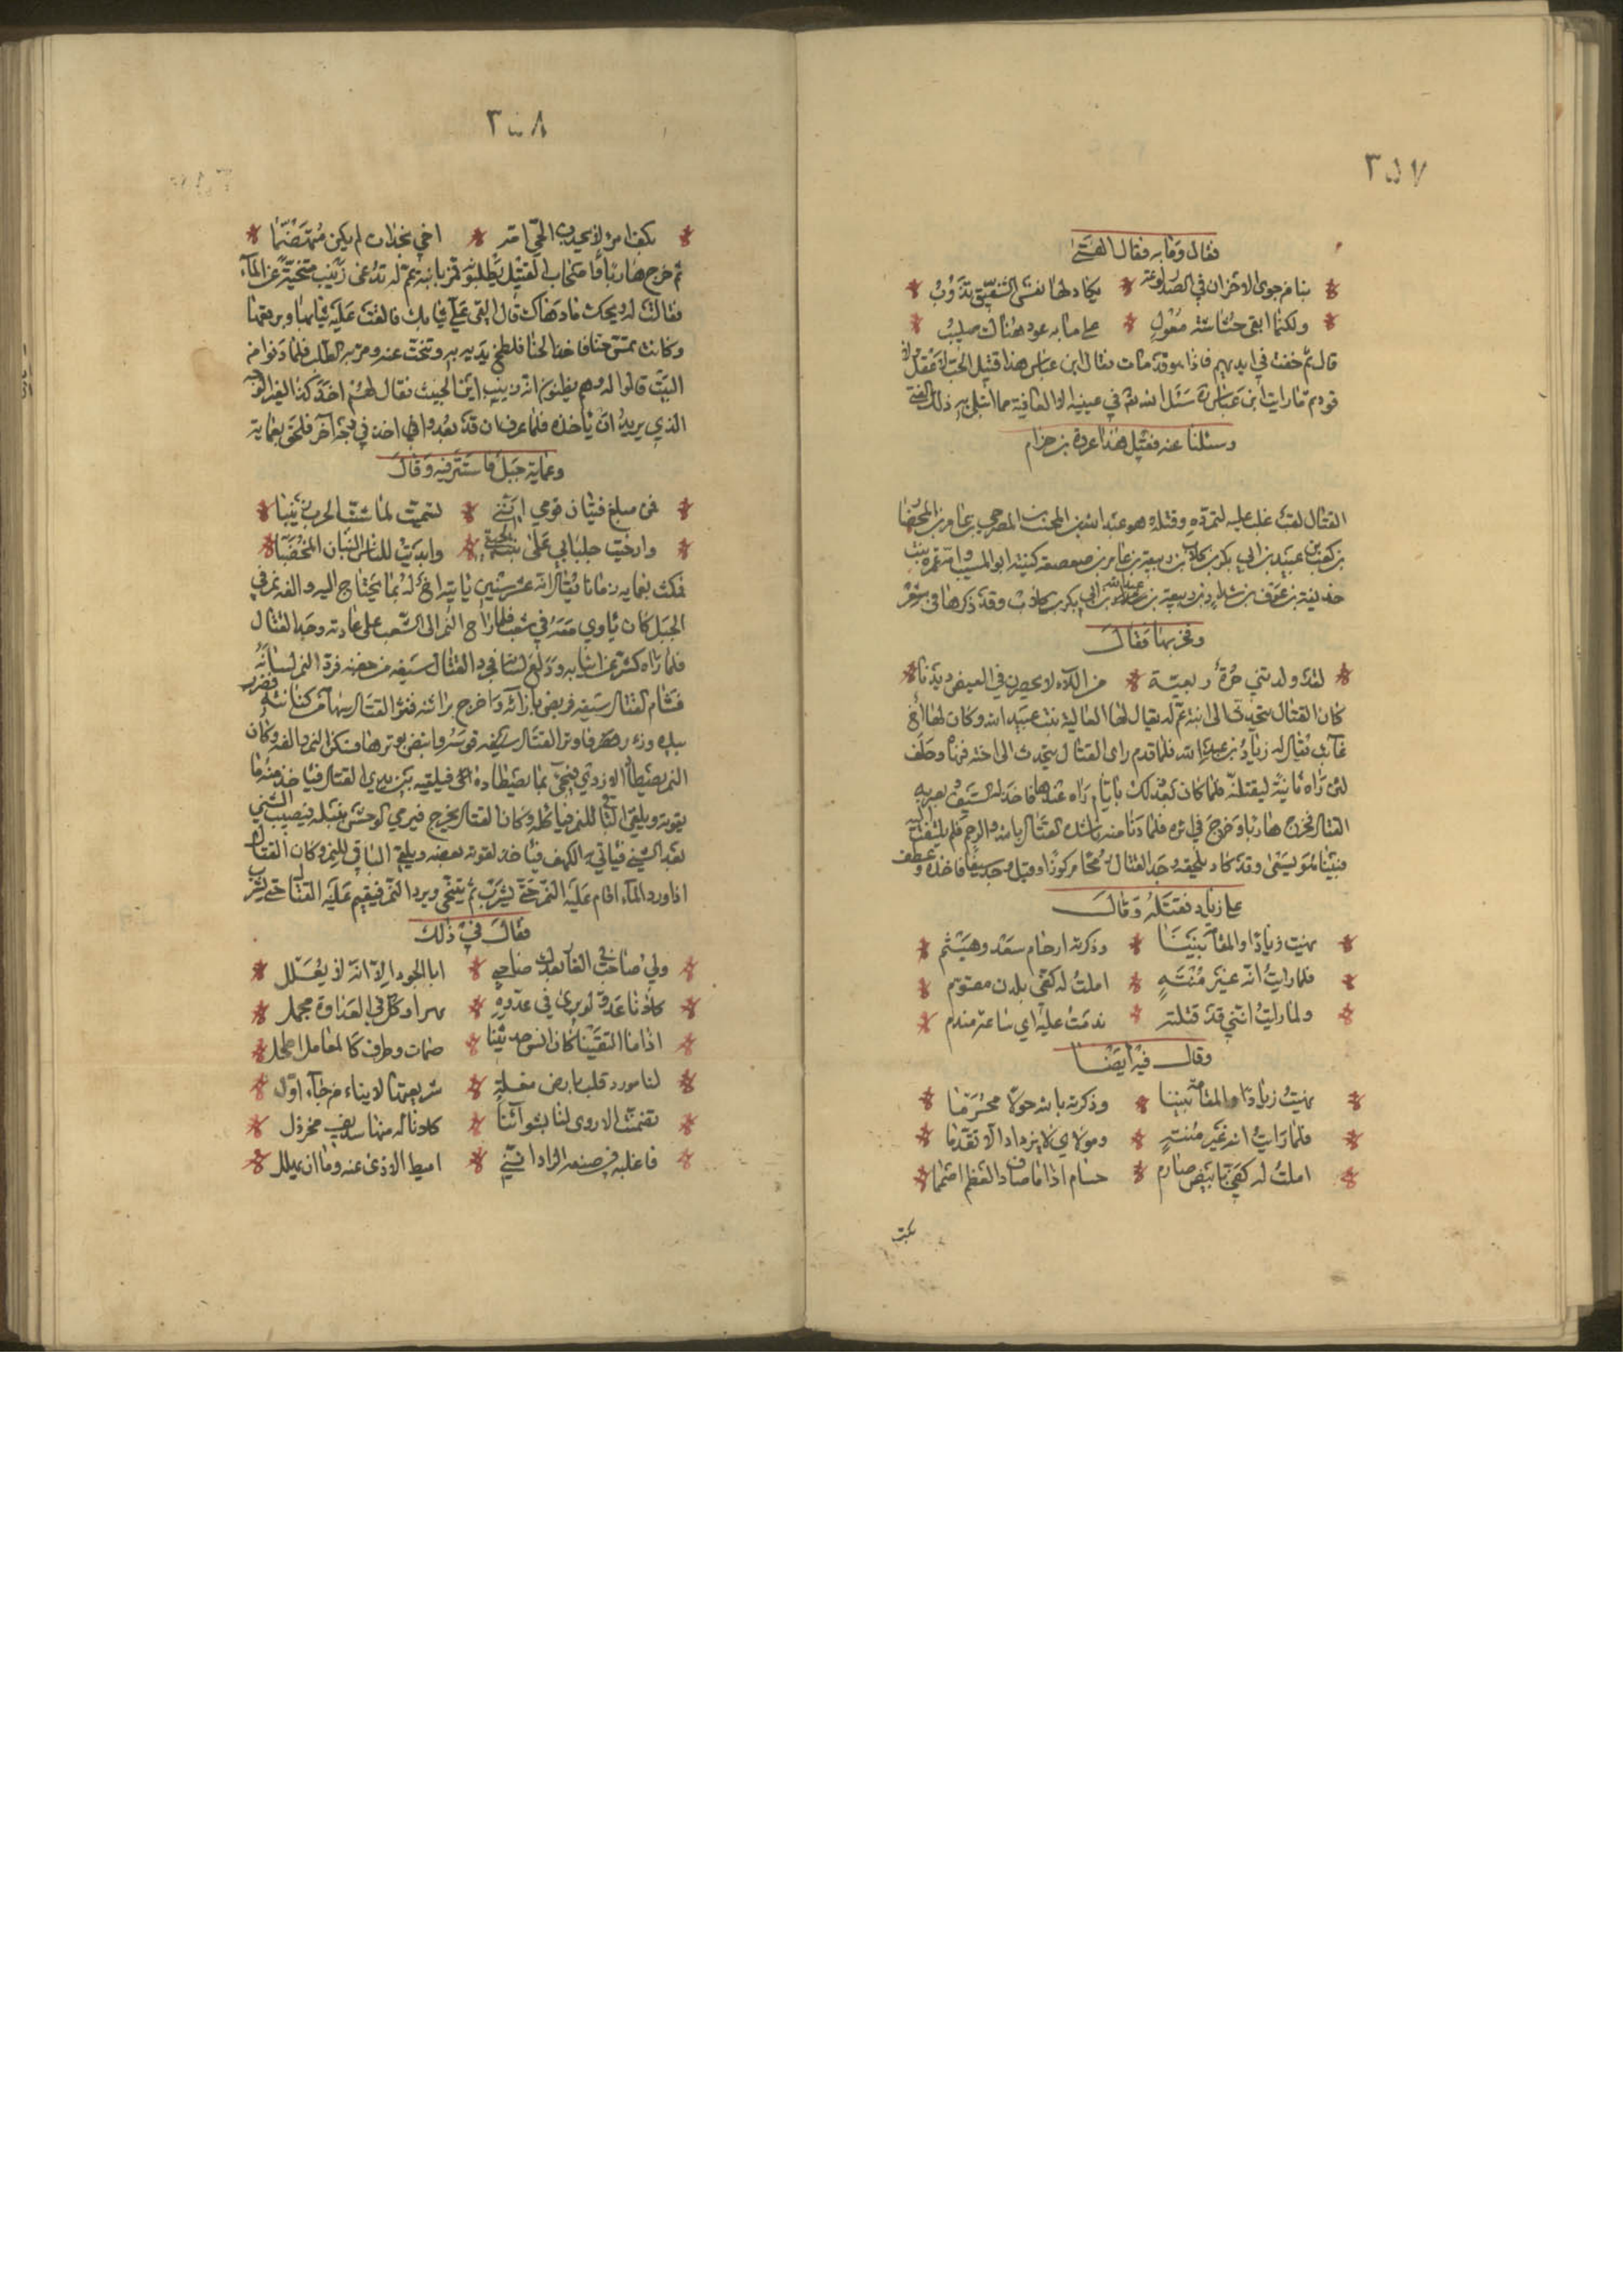 ٣٥٧
فقال وما به فقال الفتى
بنا من جوى الاحزان في الصدر لوعة * يكاد لها نفس الشفيق تذوب
ولكنما ابقى حشاشة معول * على ما به عود هناك صليب
قال ثم خفت في ايديهم فاذا هو قد مات فقال ابن عباس هذا قتيل الحب لا عقل ولا
قود ثم ما رايت ابن عباس سئل الله في عشيته الا العافية مما ابتلي به ذلك الفتى
وسئلنا عنه فقيل هذا عروة بن حزام
القتال لقب غلب عليه لتمرده وفتكه هو عبد الله بن المجيب المضرحي بن عامر
بن كعب بن عبيد بن ابي بكر بن كلاب بن ربيعة بن عامر بن صعصعة كنيته ابو المسيب وامه عمرة بنت
حذيفة بن عوف بن شداد بن ربيعة بن عبد الله بن ابي بكر بن كلاب وقد ذكرها في شعر
وفخر بها فقال
لقد ولدتني حرة ربعية * من اللاء لا يحضرن في القيض ديدنا
كان القتال يتحدث الى ابنة عم له يقال لها العالية بنت عبيد الله وكان لها اخ
غائب يقال له زياد بن عبيد الله فلما قدم راى القتال يتحدث الى اخته فنهاه وحلف
لئن راه ثانية ليقتلنه فلما كان بعد ذلك بايام راه عندها فاخذ له السيف وبصر به
القتال فخرج هاربا وخرج في اثره فلما دنا منه ناشده القتال بالله والرحم فلم يلتفت اليه
فبينا هو يسعى وقد كاد يلحقه وجد القتال رمحا مركوزا وقيل وجد سيفا فاخذه وعطف
على زياد فقتله وقال
نهيت زيادا والمقامة بيننا * وذكرته ارحام سعد وهيثم
فلما رايت انه غير منته * املت له كفي بلدن مقوم
ولما رايت انني قد قتلته * ندمت عليه اي ساعة مندم
وقال فيه ايضا
نهيت زيادا والمقامة بيننا * وذكرته بالله حولا محرما
فلما رايت انه غير منته * ومولاي لا يزداد الا تقدما
املت له كفي بابيض صارم * حسام اذا ما صادف العظم صمما
٣٥٨
بكف امرئ لا يحدث الحي امه * اخي نجدات لم يكن متهضما
ثم خرج هاربا واصحاب القتيل يطلبونه فمر بابنة عم له تدعى زينب متنحية عن الماء
فقالت له ويحك ما دهاك قال القي علي ثيابك فالقت عليه ثيابها وبرقعها
وكانت تمس حنا فاخذ الحنا فلطخ يديه به وتنحت عنه ومر به الطلب فلما دنوا من
البيت قالوا له وهم يظنون انه زينب اين الخبيث فقال لهم اخذ كذا لغير الوجه
الذي يريد ان ياخذه فلما عرف ان قد بعدوا اخذ في وجه آخر فلحق بعماية
وعماية جبل فاستتر فيه وقال
فمن مبلغ فتيان قومي انني * تسميت لما شبت الحرب زينبا
وارخيت جلبابي على نبت لحيتي * وابديت للناس البنان المخضبا
فمكث بعماية زمانا يقال انه عشر سنين ياتيه اخ له بما يحتاج اليه والفه نمر في
الجبل كان ياوي معه في شعب فلما راح النمر الى الشعب على عادته وجد القتال
فلما راه كشر عن انيابه وولغ لسانه فجرد القتال سيفه من جفنه فرد النمر لسانه
فشام القتال سيفه فربض بازائه واخرج براثنه فنثر القتال سهامه من كنانته
بيده وزء ر فاوتر القتال قوسه وانبض بوترها فسكن النمر والفه وكان
النمر يصطاد الاروى فيجئ بما يصطاده فيلقيه بين يدي القتال فياخذ منه ما
يقوته ويلقي الباقي للنمر فياكله وكان القتال يخرج فيرمي الوحش بنبله فيصيب الشئ
بعد الشئ فياتي به الكهف فياخذ لقوته بعضه ويلقي الباقي للنمر وكان القتال
اذا ورد الماء اقام عليه النمر حتى يشرب ثم يتنحى ويرد النمر فيقيم عليه القتال حتى يشرب
فقال في ذلك
ولي صاحب في الغار يعدل صاحبي * ابا الجود الا انه لا يعلل
كلانا عدو لو يرى في عدوه * مهزا وكل في العداوة مجمل
اذا ما التقينا كان انس حديثنا * صمات وطرف كالمعابل اطحل
لنا مورد قلت بارض مضلة * شريعتها لاينا من جاء اول
تضمنت الاروى لنا بشوائنا * كلانا له منها سديف مخردل
فاغلبه في صنعة الزاد انني * اميط الاذى عنه وما ان يهلل